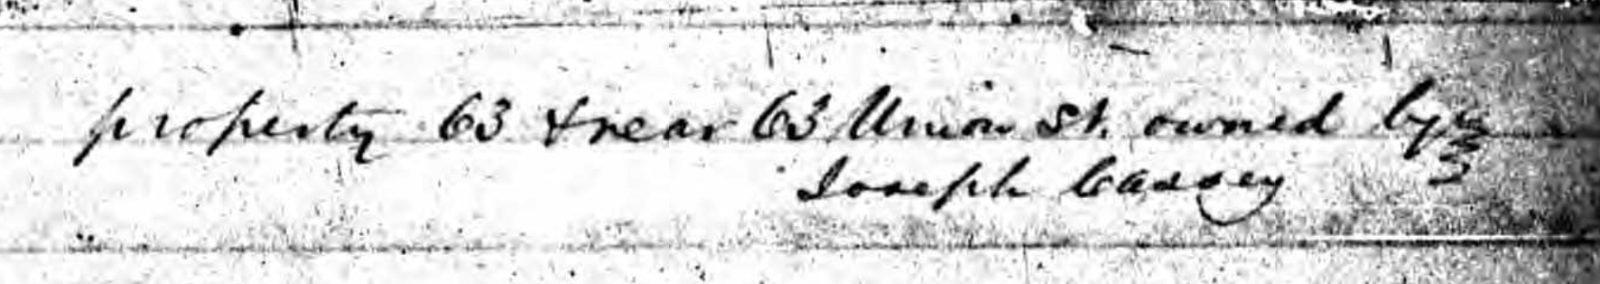 property 63 & rear 63 Union St. owned by
Joseph Cassey